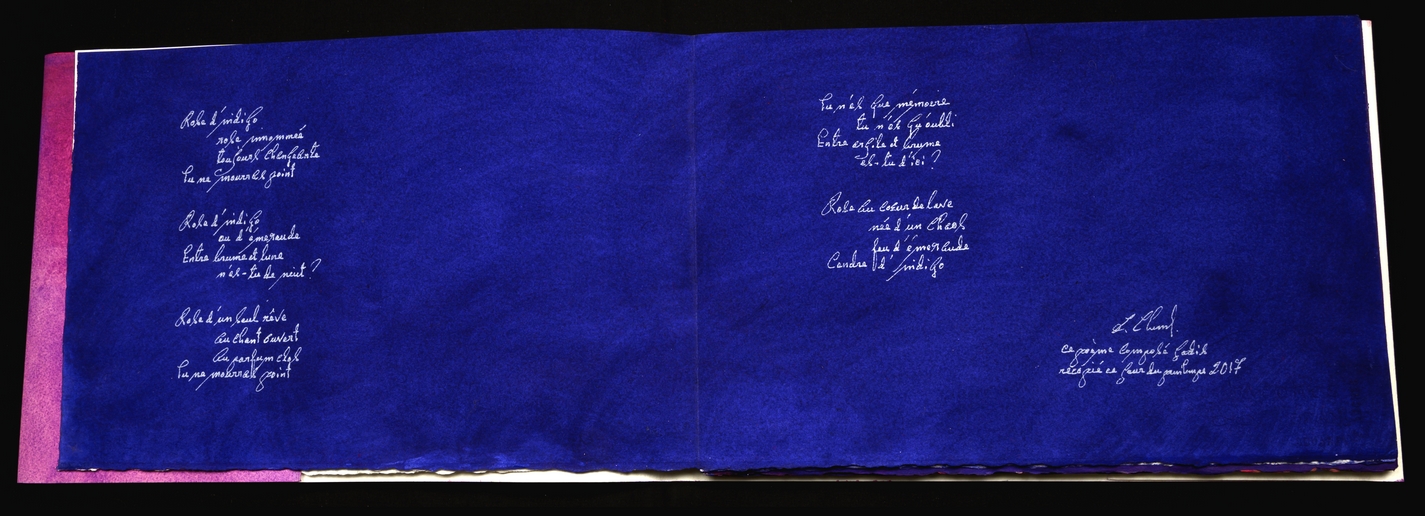 Robe d'indigo
robe innommée
toujours changeante
Tu ne mourras point
Robe d'indigo
ou d'émeraude
Entre brume et lune
n'es-tu de nuit ?
Robe d'un seul rêve
au chant ouvert
au parfum clos
Tu ne mourras point
Tu n'es que mémoire
tu n'es qu'oubli
Entre argile et brume
es-tu d'ici ?
Robe au cœur de lave
née d'un chaos
feu d'émeraude
Cendre d'indigo
ce poème composé jadis
recopié ce jour du printemps 2017